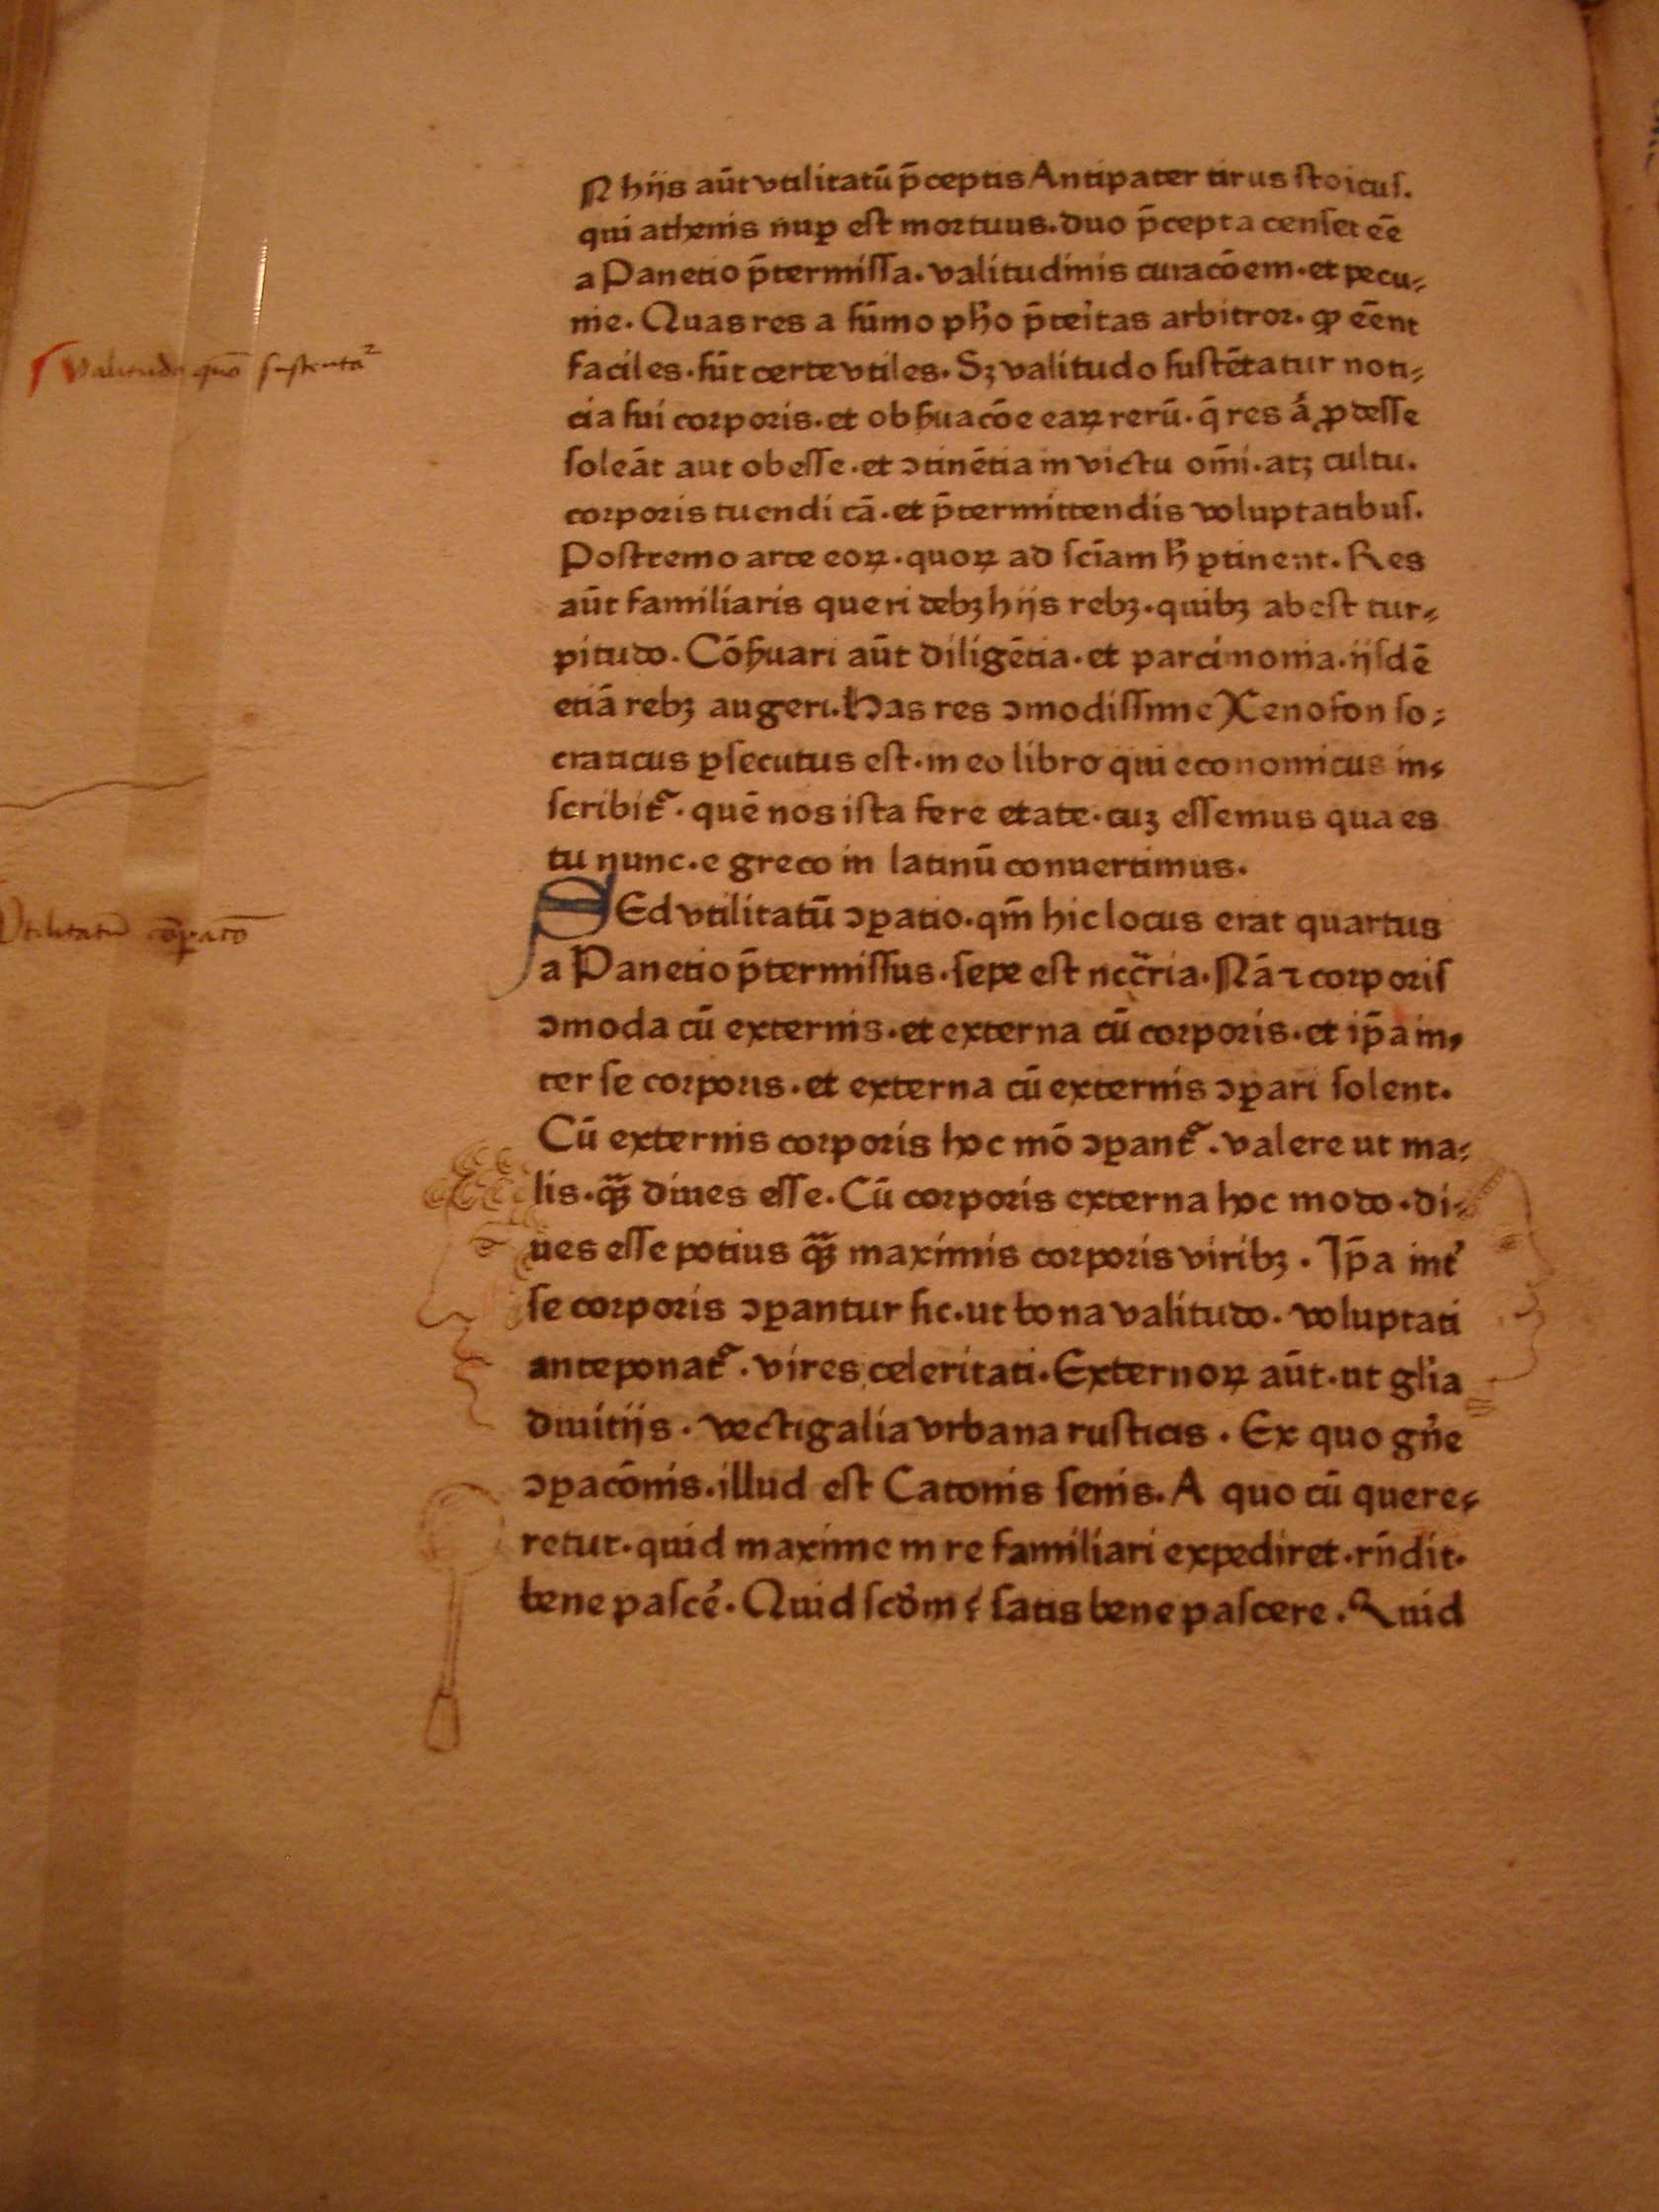 N hijs aūt vtilitatū p̄ceptis Antipater tirus ſtoicuſ.
qui athenis nuꝑ eſt mortuus. duo p̄cepta cenſet ēē
a Panetio p̄termiſſa. valitudinis curacōem. et pecu⸗
nie. Quas res a ſūmo pħo p̄teritas arbitror. ꝙ eēnt
faciles. ſūt certe vtiles. Sꝫ valitudo ſuſtētatur noti⸗
cia ſui corporis. et obſꝰuacōe eaꝝ rerū. q̄ res aꝰ ꝓdeſſe
ſoleāt aut obeſſe. et ↄtinētia in victu om̄i. atꝫ cultu.
corporis tuendi cā. et p̄termittendis voluptatibuſ.
Poſtremo arte eoꝝ. quoꝝ ad ſciam h̄ ꝑtinent. Res
aūt familiaris queri debꝫ hijs rebꝫ. quibꝫ abeſt tur⸗
pitudo. Cōſꝰuari aūt diligētia. et parcimonia. ijſdē
etiā rebꝫ augeri. Has res ↄmodiſſime Xenofon ſo⸗
craticus ꝑſecutus eſt. in eo libro qui economicus in⸗
ſcribit᷑. quē nos iſta fere etate. cuꝫ eſſemus qua es
tu nunc. e greco in latinū conuertimus.
SEd vtilitatū ↄꝑatio. qm̄ hic locus erat quartus
a Panetio p̄termiſſus. ſepe eſt ncc̄ria. Nā ⁊ corporiſ
ↄmoda cū externis. et externa cū corporis. et ip̄a in⸗
ter ſe corporis. et externa cū externis ↄꝑari ſolent.
Cū externis corporis hoc mō ↄꝑant᷑. valere ut ma⸗
lis. qͣꝫ diues eſſe. Cū corporis externa hoc modo. di⸗
ues eſſe potius qͣꝫ maximis corporis viribꝫ. Ip̄a intꝰ
ſe corporis ↄꝑantur ſic. ut bona valitudo. voluptati
anteponat᷑. vires celeritati. Externoꝝ aūt. ut glīa
diuitijs. vectigalia vrbana ruſticis. Ex quo gn̄e
ↄꝑacōnis. illud eſt Catonis ſenis. A quo cū quere⸗
retur. quid maxime in re familiari expediret. rn̄dit.
bene paſcē. Quid ſcd̓m ? ſatis bene paſcere. Quid
Valitudo quō ſuſtentat᷑
Vtilitatū cōꝑatō